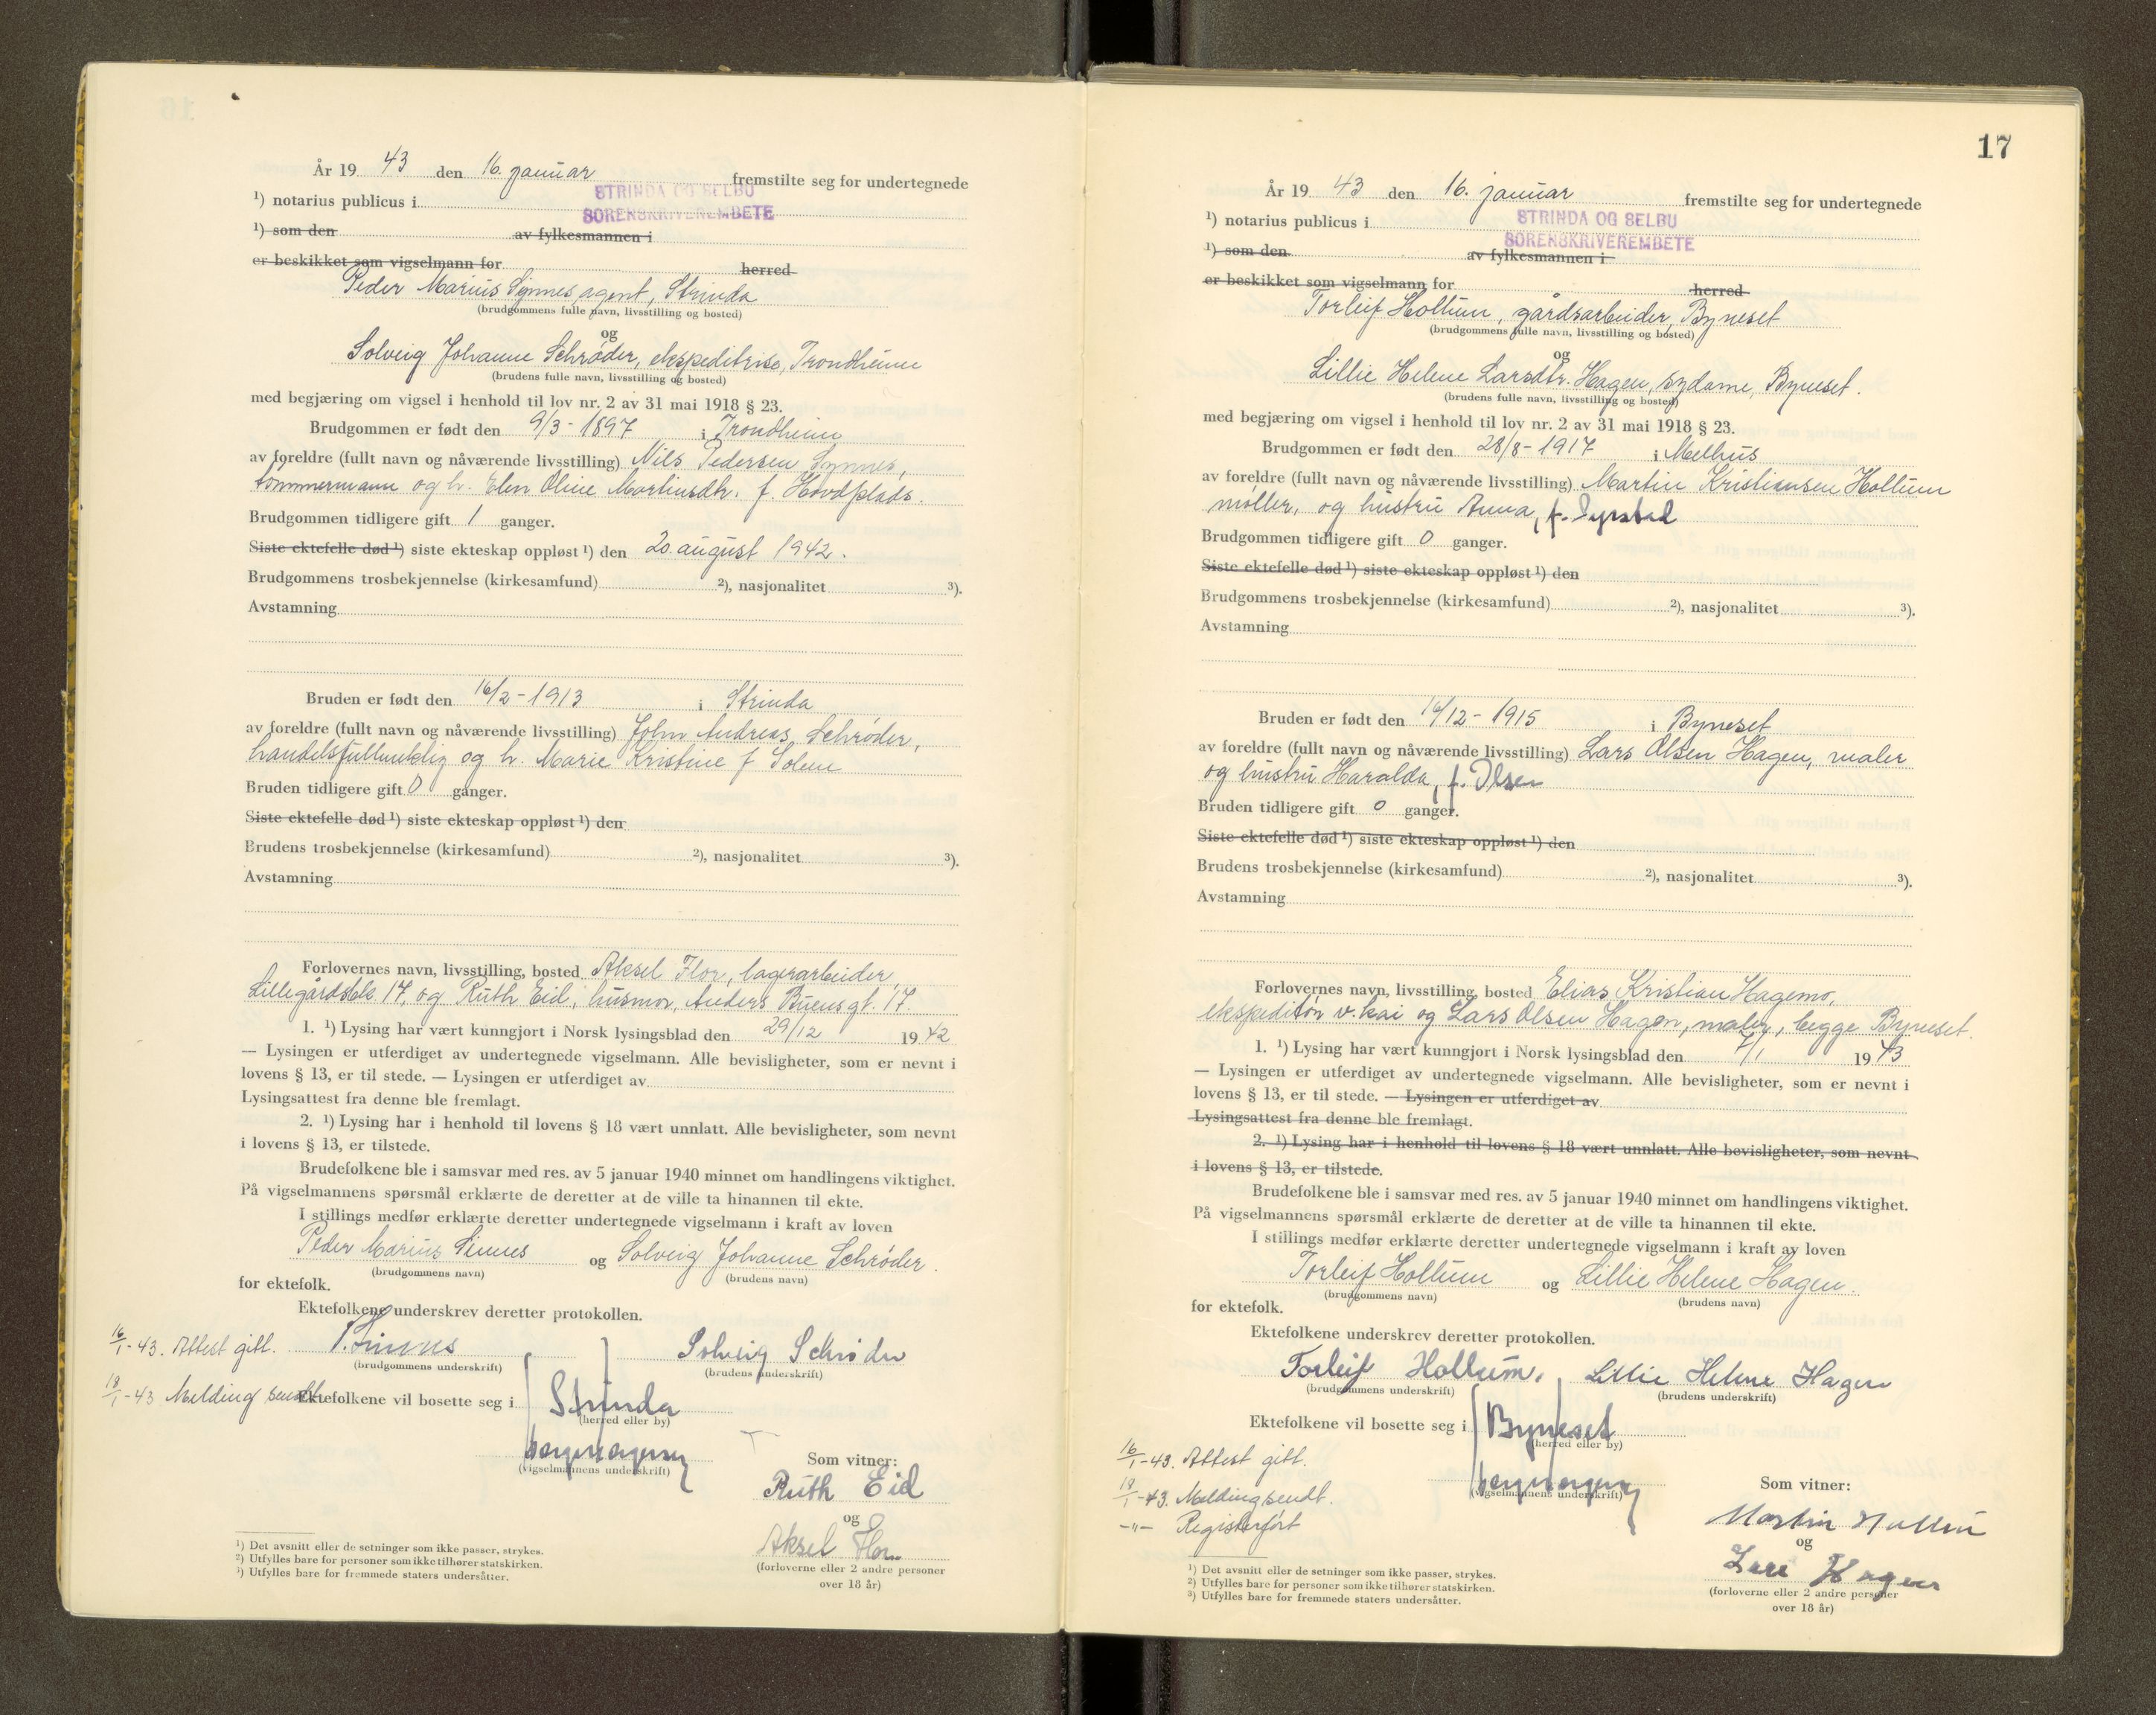 År 19 43 den 16. januar fremstilte seg for undertegnede
STRINDA OG SELBU
¹) notarius publicus i SORENSKRIVEREMBETE
¹) som den av fylkesmannen i
er beskikket som vigselmann for herred
Peder Marius Synnes, agent, Strinda
(brudgommens fulle navn, livsstilling og bosted)
og
Solveig Johanne Schrøder, ekspeditrise, Trondheim
(brudens fulle navn, livsstilling og bosted)
med begjæring om vigsel i henhold til lov nr. 2 av 31 mai 1918 § 23.
Brudgommen er født den 9/3 - 1897 i Trondheim
av foreldre (fullt navn og nåværende livsstilling) Nils Pedersen Synnes,
tømmermann og h. Elen Oline Martinsdtr. f. Hovdplads.
Brudgommen tidligere gift 1 ganger.
Siste ektefelle død ¹) siste ekteskap oppløst ¹) den 20. august 1942.
Brudgommens trosbekjennelse (kirkesamfund) ²), nasjonalitet ³).
Avstamning
Bruden er født den 16/2 - 1913 i Strinda
av foreldre (fullt navn og nåværende livsstilling) John Andreas Schrøder,
handelsfullmektig og h. Marie Kristine f Solem
Bruden tidligere gift 0 ganger.
Siste ektefelle død ¹) siste ekteskap oppløst ¹) den
Brudens trosbekjennelse (kirkesamfund) ²), nasjonalitet ³).
Avstamning
Forlovernes navn, livsstilling, bosted Aksel Flor, lagerarbeider,
Lillegårdsbk. 17, og Ruth Eid, husmor, Anders Buens gt. 17.
1. ¹) Lysing har vært kunngjort i Norsk lysingsblad den 29/12 1942
— Lysingen er utferdiget av undertegnede vigselmann. Alle bevisligheter, som er nevnt i
lovens § 13, er til stede. — Lysingen er utferdiget av
Lysingsattest fra denne ble fremlagt.
2. ¹) Lysing har i henhold til lovens § 18 vært unnlatt. Alle bevisligheter, som nevnt
i lovens § 13, er tilstede.
Brudefolkene ble i samsvar med res. av 5 januar 1940 minnet om handlingens viktighet.
På vigselmannens spørsmål erklærte de deretter at de ville ta hinannen til ekte.
I stillings medfør erklærte deretter undertegnede vigselmann i kraft av loven
Peder Marius Sinnes og Solveig Johanne Schrøder.
(brudgommens navn) (brudens navn)
for ektefolk.
Ektefolkene underskrev deretter protokollen.
16/1-43. Attest gitt. P. Sinnes Solveig Schrøder
(brudgommens underskrift) (brudens underskrift)
18/1-43 Melding sendt Ektefolkene vil bosette seg i Strinda
(herred eller by)
(vigselmannens underskrift)
Som vitner:
Ruth Eid
og
Aksel Flor
(forloverne eller 2 andre personer
over 18 år)
¹) Det avsnitt eller de setninger som ikke passer, strykes.
²) Utfylles bare for personer som ikke tilhører statskirken.
³) Utfylles bare for fremmede staters undersåtter.
17
År 19 43 den 16. januar fremstilte seg for undertegnede
¹) notarius publicus i STRINDA OG SELBU
SORENSKRIVEREMBETE
¹) som den av fylkesmannen i
er beskikket som vigselmann for herred
Torleif Hollum, gårdsarbeider, Byneset
(brudgommens fulle navn, livsstilling og bosted)
og
Lillie Helene Larsdtr. Hagen, sydame, Byneset.
(brudens fulle navn, livsstilling og bosted)
med begjæring om vigsel i henhold til lov nr. 2 av 31 mai 1918 § 23.
Brudgommen er født den 28/8 - 1917 i Melhus
av foreldre (fullt navn og nåværende livsstilling) Martin Kristiansen Hollum
møller, og hustru Anna, f. Syrstad
Brudgommen tidligere gift 0 ganger.
Siste ektefelle død ¹) siste ekteskap oppløst ¹) den
Brudgommens trosbekjennelse (kirkesamfund) ²), nasjonalitet ³).
Avstamning
Bruden er født den 16/12 - 1915 i Byneset
av foreldre (fullt navn og nåværende livsstilling) Lars Olsen Hagen, maler
og hustru Haralda, f. Olsen
Bruden tidligere gift 0 ganger.
Siste ektefelle død ¹) siste ekteskap oppløst ¹) den
Brudens trosbekjennelse (kirkesamfund) ²), nasjonalitet ³).
Avstamning
Forlovernes navn, livsstilling, bosted Elias Kristian Hagemo,
ekspeditør v. kai og Lars Olsen Hagen, maler, begge Byneset.
1. ¹) Lysing har vært kunngjort i Norsk lysingsblad den 7/1 1943
— Lysingen er utferdiget av undertegnede vigselmann. Alle bevisligheter, som er nevnt i
lovens § 13, er til stede. — Lysingen er utferdiget av
Lysingsattest fra denne ble fremlagt.
2. ¹) Lysing har i henhold til lovens § 18 vært unnlatt. Alle bevisligheter, som nevnt
i lovens § 13, er tilstede.
Brudefolkene ble i samsvar med res. av 5 januar 1940 minnet om handlingens viktighet.
På vigselmannens spørsmål erklærte de deretter at de ville ta hinannen til ekte.
I stillings medfør erklærte deretter undertegnede vigselmann i kraft av loven
Torleif Hollum og Lillie Helene Hagen.
(brudgommens navn) (brudens navn)
for ektefolk.
Ektefolkene underskrev deretter protokollen.
Torleif Hollum. Lillie Helene Hagen
(brudgommens underskrift) (brudens underskrift)
Ektefolkene vil bosette seg i Byneset
(herred eller by)
16/1-43. Attest gitt.
(vigselmannens underskrift)
Som vitner:
18/1-43. Melding sendt.
-"- Registerført
Martin Hollum
og
Lars Hagen
(forloverne eller 2 andre personer
over 18 år)
¹) Det avsnitt eller de setninger som ikke passer, strykes.
²) Utfylles bare for personer som ikke tilhører statskirken.
³) Utfylles bare for fremmede staters undersåtter.